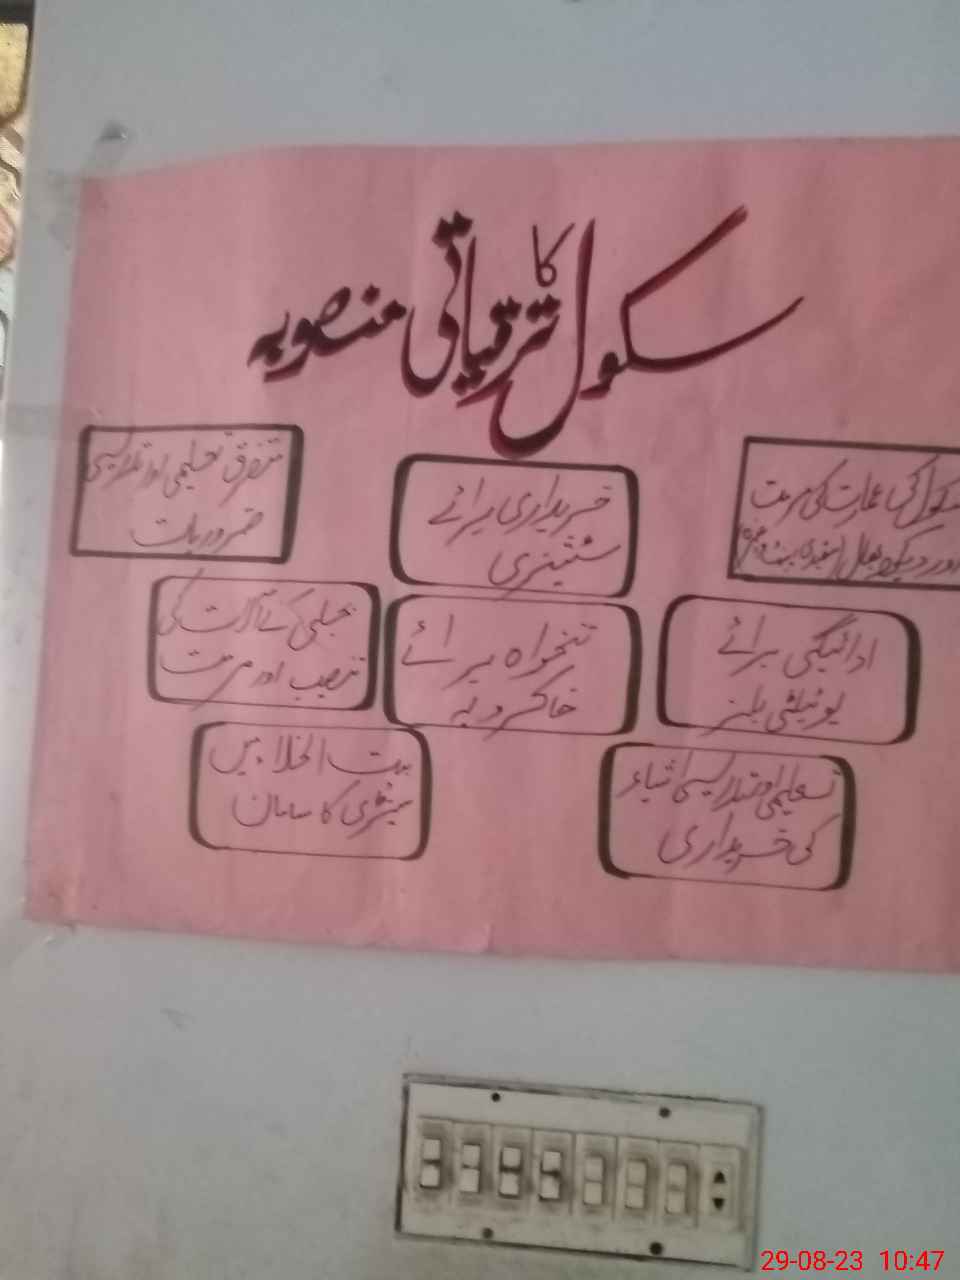 سکول کا ترقیاتی منصوبہ
سکول کی عمارت کی مرمت
اور دیکھ بھال (سفیدی پینٹ وغیرہ)
خریداری برائے
سٹیشنری
متفرق تعلیمی اور تدریسی
ضروریات
ادائیگی برائے
یوٹیلٹی بلز
تنخواہ برائے
خاکروب
بجلی کے آلات کی
تنصیب اور مرمت
تعلیمی اور تدریسی اشیاء
کی خریداری
بیت الخلاء میں
سینٹری کا سامان
29-08-23 10:47